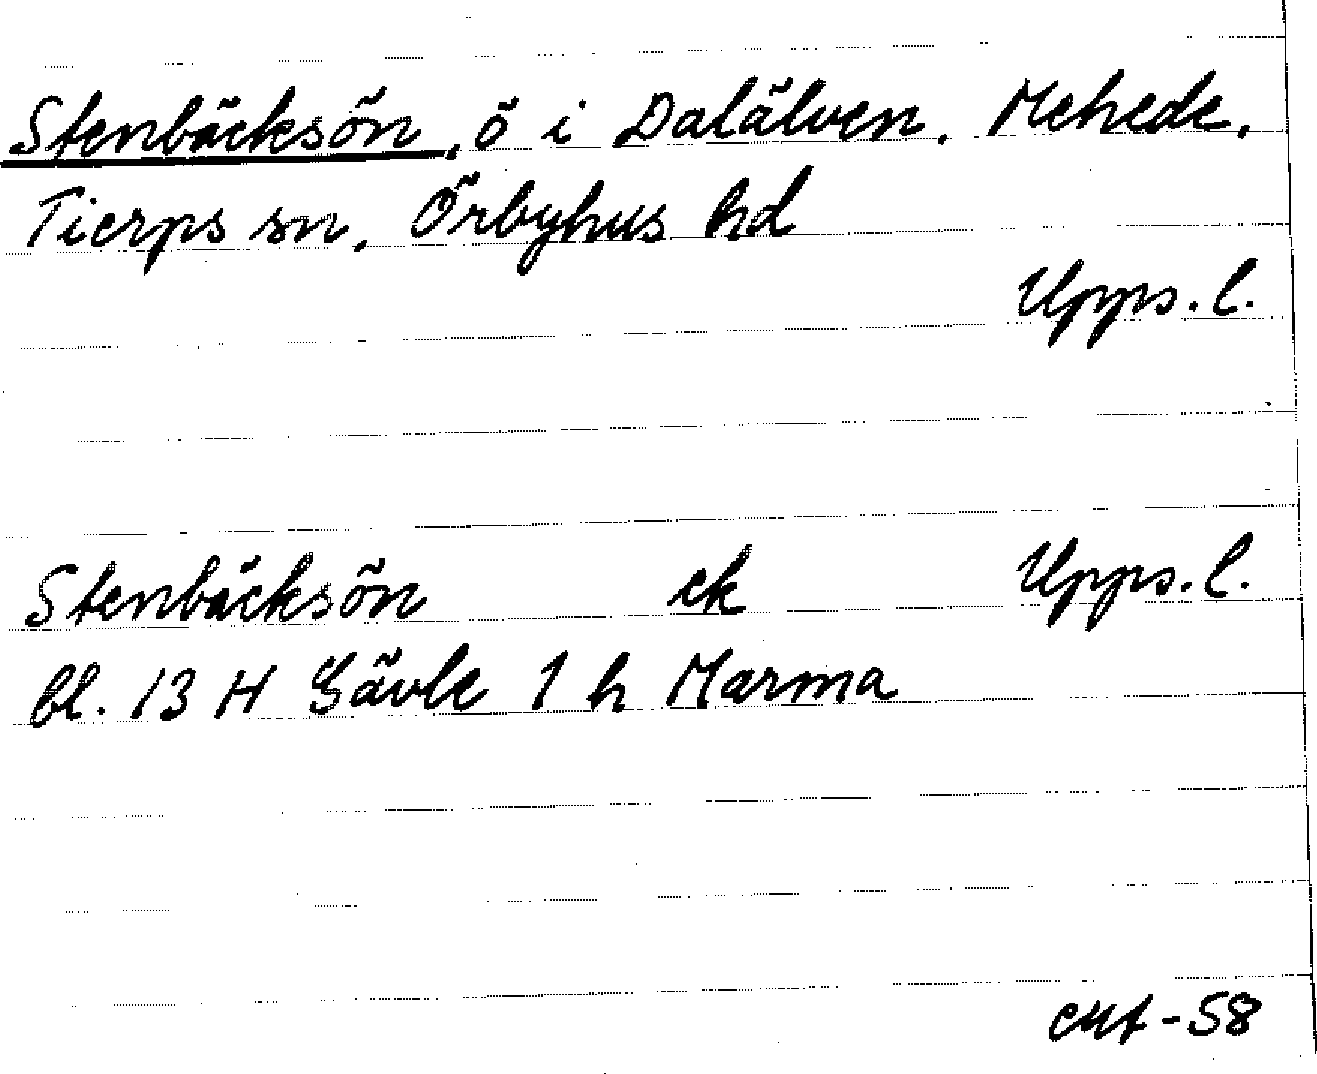 Stenbäcksön, ö i Dalälven, Mehede,
Tierps sn, Örbyhus hd
Upps. l.
Stenbäcksön ek Upps. l.
bl. 13 H Gävle 1 h Marma
-58